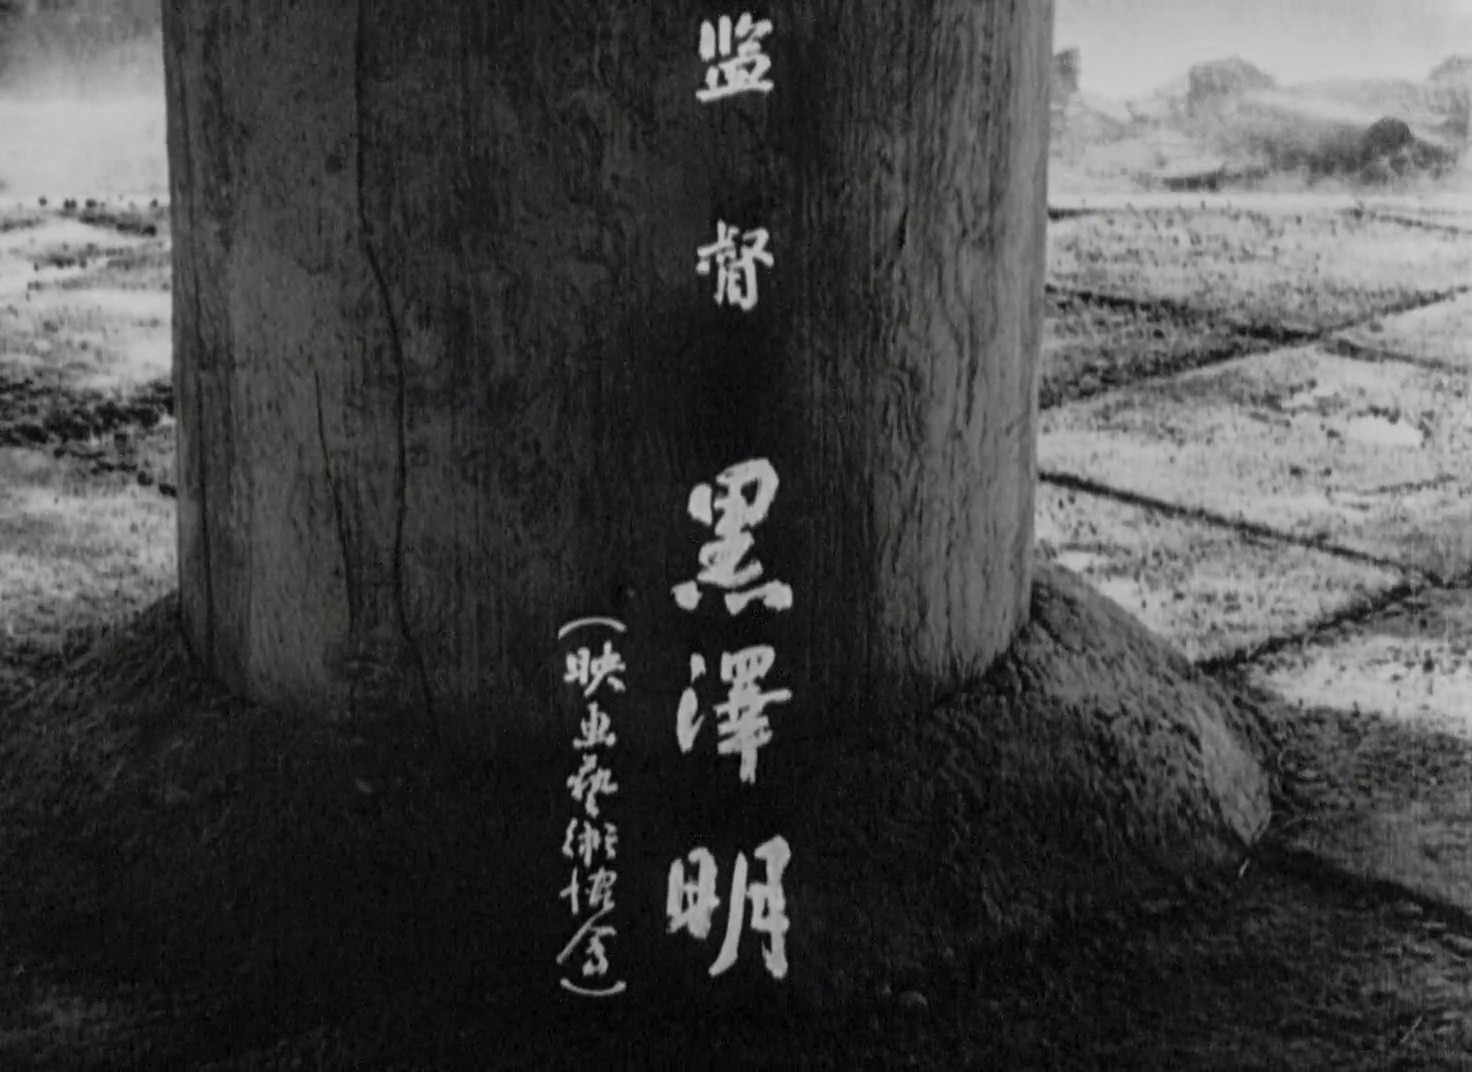 監督 黒澤明
(映画藝術協會)